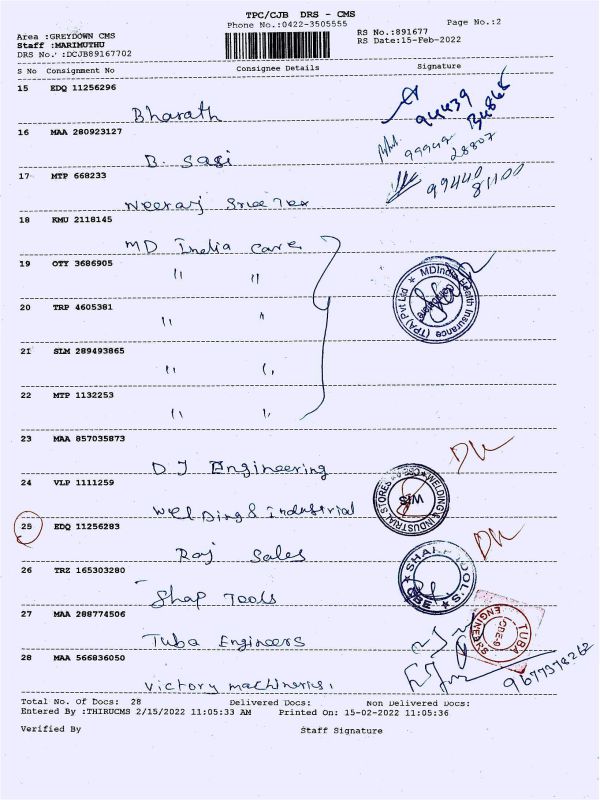 TPC/CJB DRS - CMS
Phone No.:0422-3505555
Page No.:2
Area :GREYDOWN CMS
Staff :MARIMUTHU
DRS No.:DCJB89167702
RS No.:891677
RS Date:15-Feb-2022
S No Consignment No Consignee Details Signature
15 EDQ 11256296
Bharath
94439
16 MAA 280923127
B. Sasi
99942
28807
17 MTP 668233
Neeraj Sree Tex
18 KMU 2118145
MD India Care
19 OTY 3686905
" "
MDIndia Health Insurance (TPA) Pvt Ltd
Coimbatore
20 TRP 4605381
" "
21 SLM 289493865
" "
22 MTP 1132253
" "
23 MAA 857035873
D J Engineering
24 VLP 1111259
Welding & Industrial
WELDING & INDUSTRIAL STORES
WIS
25 EDQ 11256283
Raj Sales
26 TRZ 165303280
Shap Tools
SHARP TOOL'S
27 MAA 288774506
Tuba Engineers
TUBA ENGINEERS
28 MAA 566836050
Victory machineries.
9677378262
Total No. of Docs: 28 Delivered Docs: Non Delivered Docs:
Entered By :THIRUCMS 2/15/2022 11:05:33 AM Printed On: 15-02-2022 11:05:36
Verified By Staff Signature